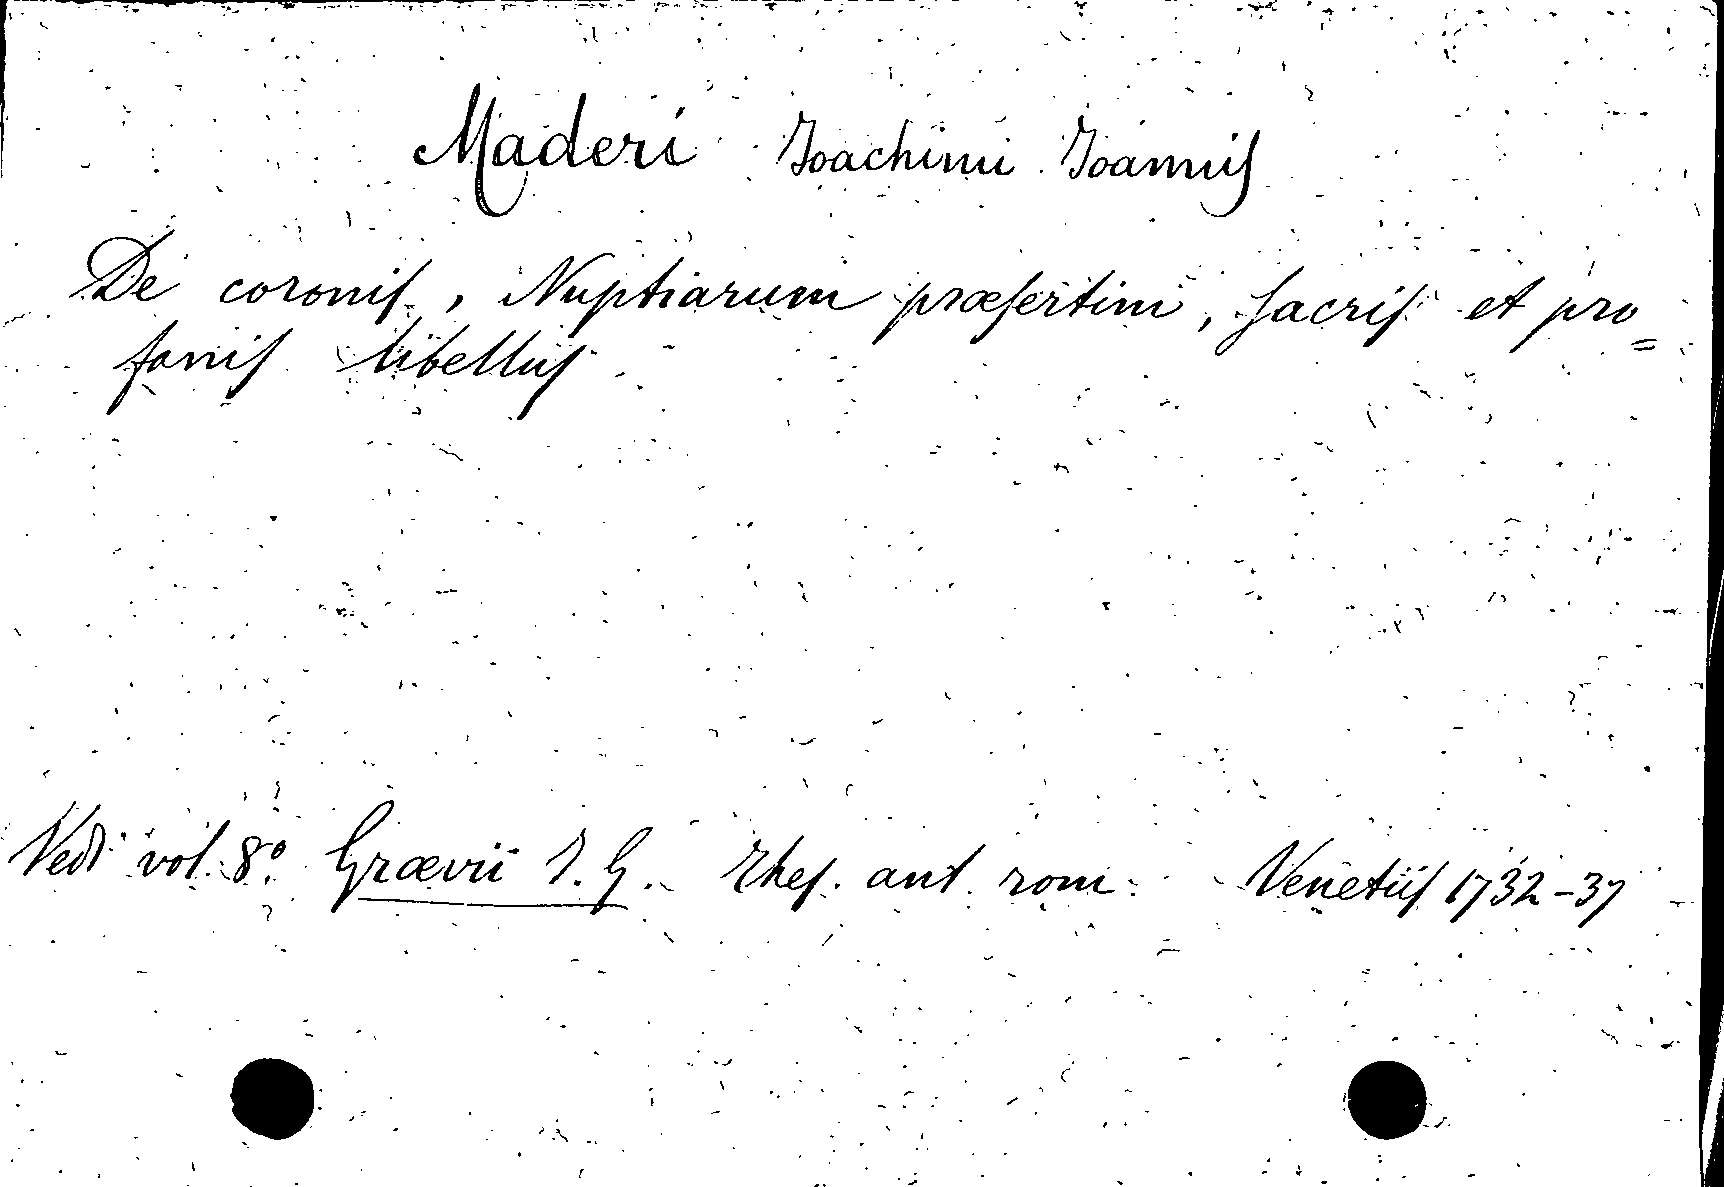 Maderi Joachimi Joannis
De coronis, Nuptiarum præsertim, sacris et pro=
fanis libellus
Vedi vol. 8º Grævii J. G. Thes. ant. rom. Venetiis 1732-37